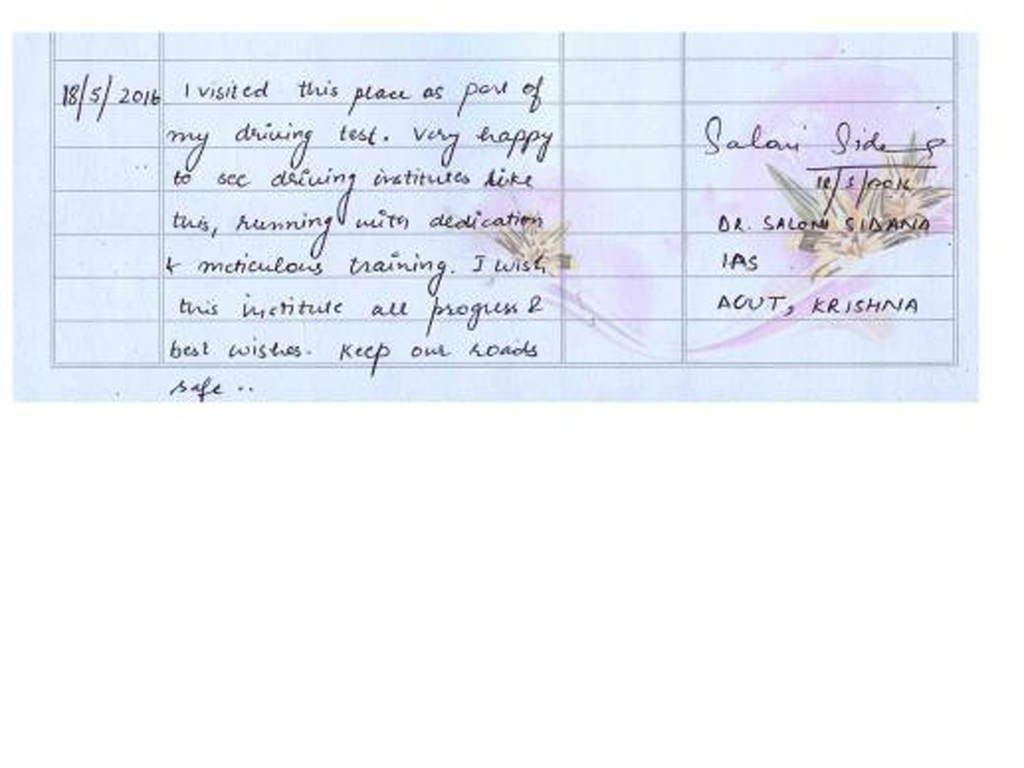 18/5/2016
I visited this place as part of
my driving test. Very happy
to see driving institutes like
this, running with dedication
& meticulous training. I wish
this institute all progress &
best wishes. Keep our roads
safe ..
Saloni
18/5/2016
DR. SALONI SIDANA
IAS
ACUT, KRISHNA